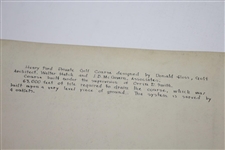 Henry Ford Estate Golf Course designed by Donald Ross, Golf
Architect, Walter Hatch and J.B. McGovern, Associates.
Course built under the supervision of
65,000 feet of tile required to drain the course, which was
built upon a very level piece of ground. The system is served by
5 outlets.